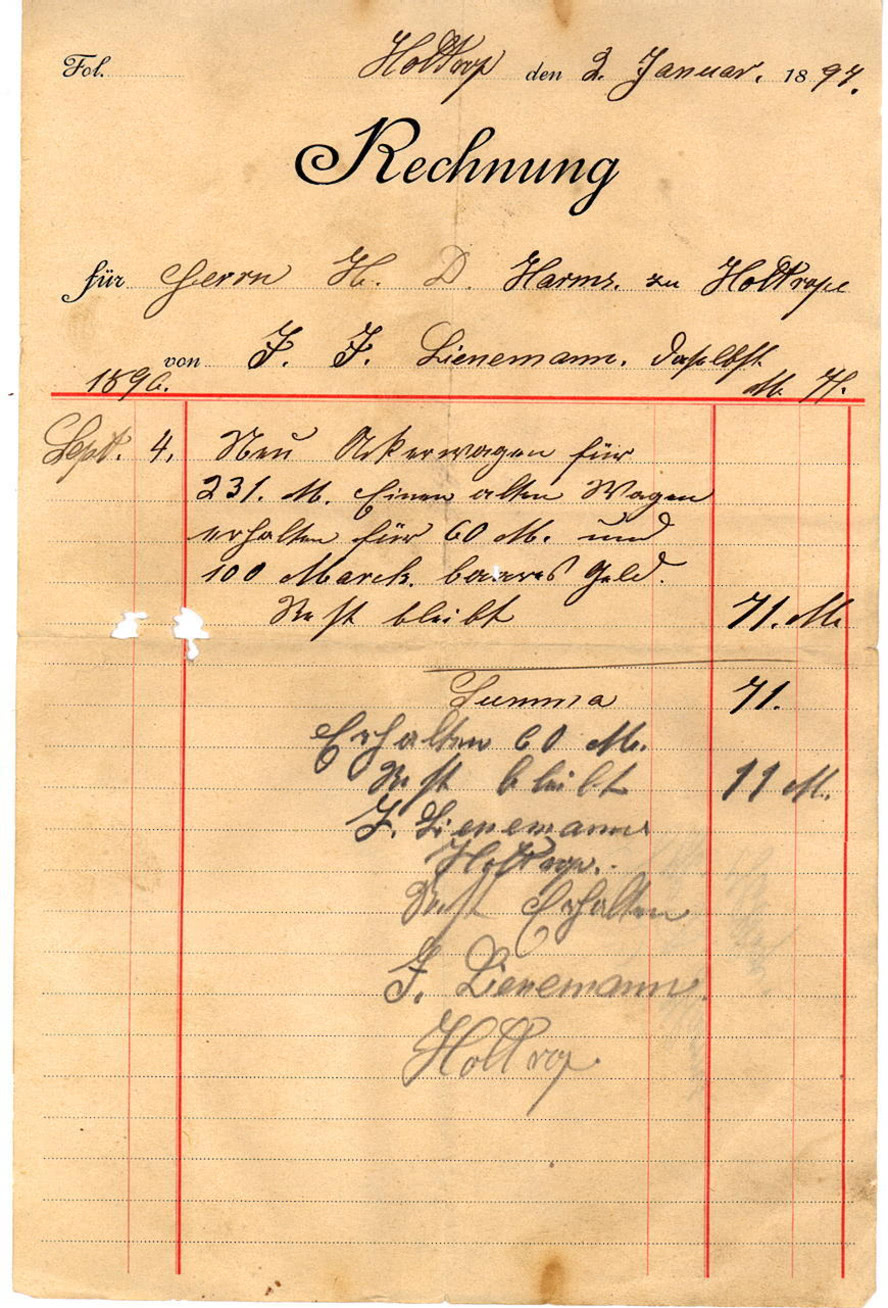 Fol. Holtrop den 2. Januar. 1897.
Rechnung
für Herrn H. D. Harms. zu Holtrope
von J. J. Lienemann. daselbst
1896. M. Pf.
Sept. 4. Neu Ackerwagen für
231. M. Einen alten Wagen
erhalten für 60 M. und
100 Marck. baares Geld.
Rest bleibt 71. M.
Summa 71.
Erhalten 60 M.
Rest bleibt 11 M.
J. Lienemann
Holtrop.
Rest Erhalten
J. Lienemann.
Holtrop.